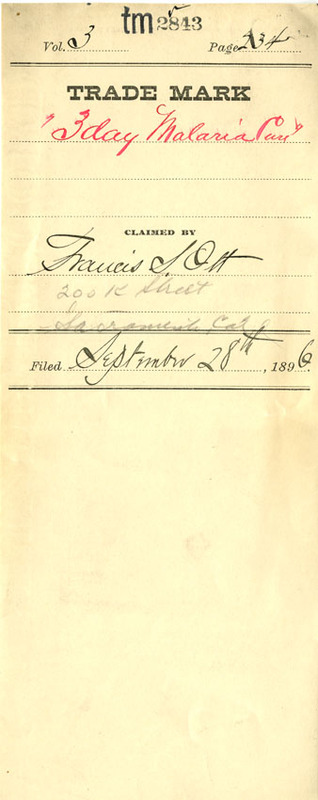 tm 2843
Vol. 3 Page 234
TRADE MARK
"3 day Malaria Cure"
CLAIMED BY
Francis S. Ott
200 K Street
Sacramento Cal
Filed September 28th, 1896.